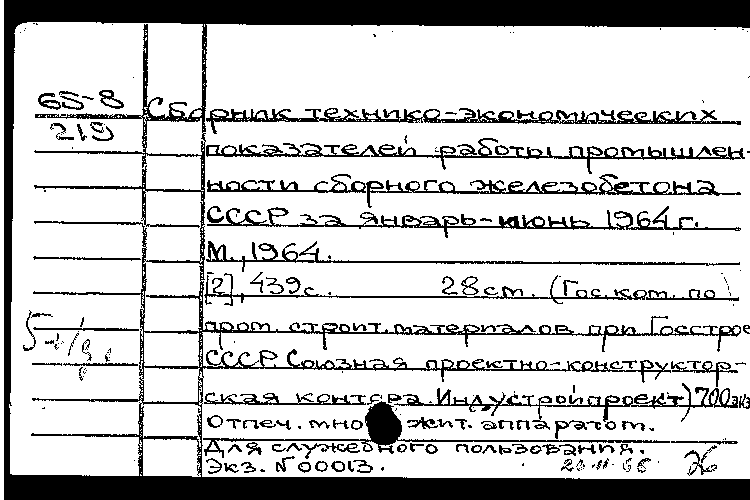 65-8
219
Сборник технико-экономических
показателей работы промышлен-
ности сборного железобетона
СССР за январь-июнь 1964 г.
М., 1964.
[2], 439 с. 28 см. (Гос. ком. по
пром. строит. материалов при Госстрое
СССР. Союзная проектно-конструктор-
ская контора Индустройпроект) 700 экз
Отпеч. множит. аппаратом.
Для служебного пользования.
Экз. N 00013.